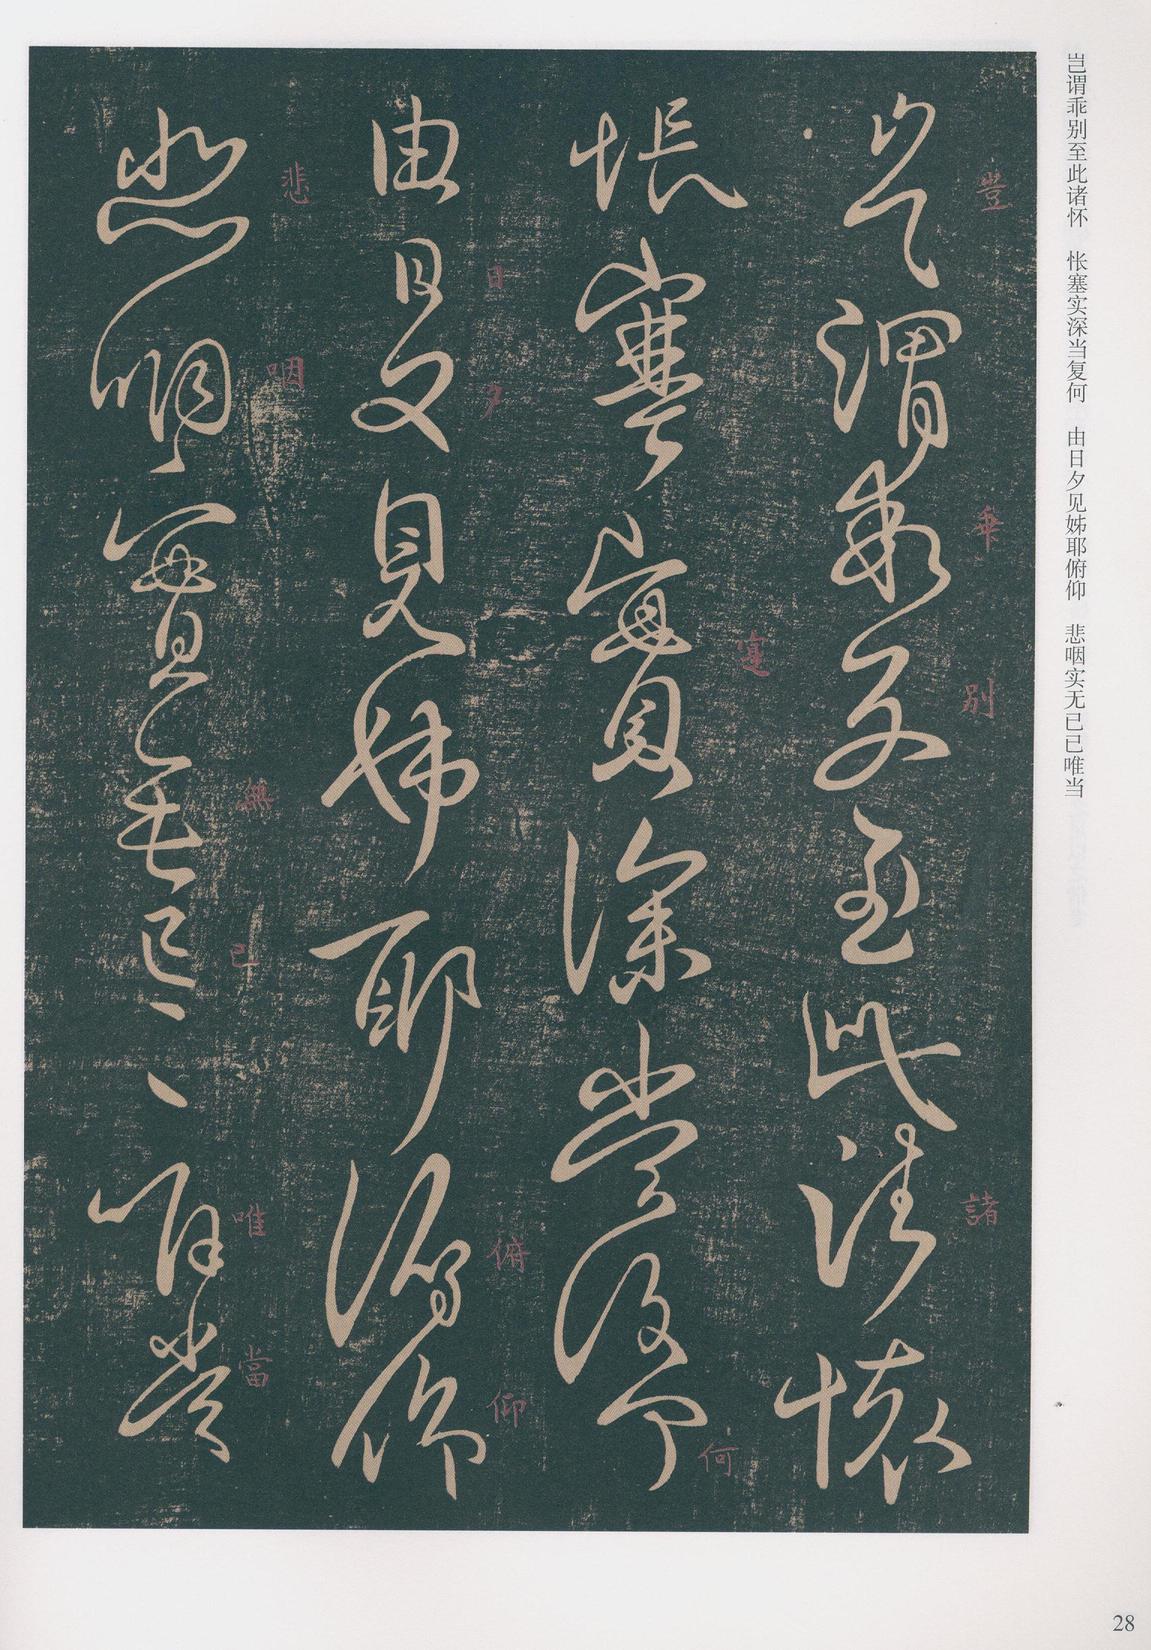 岂谓乖别至此诸怀 怅塞实深当复何 由日夕见姊耶俯仰 悲咽实无已已唯当
豈謂乖別至此諸懷
悵塞實深當復何
由日夕見姊耶俯仰
悲咽實無已〻唯當
豈
乖
別
諸
寔
何
日
夕
俯
仰
悲
咽
無
已
唯
當
28